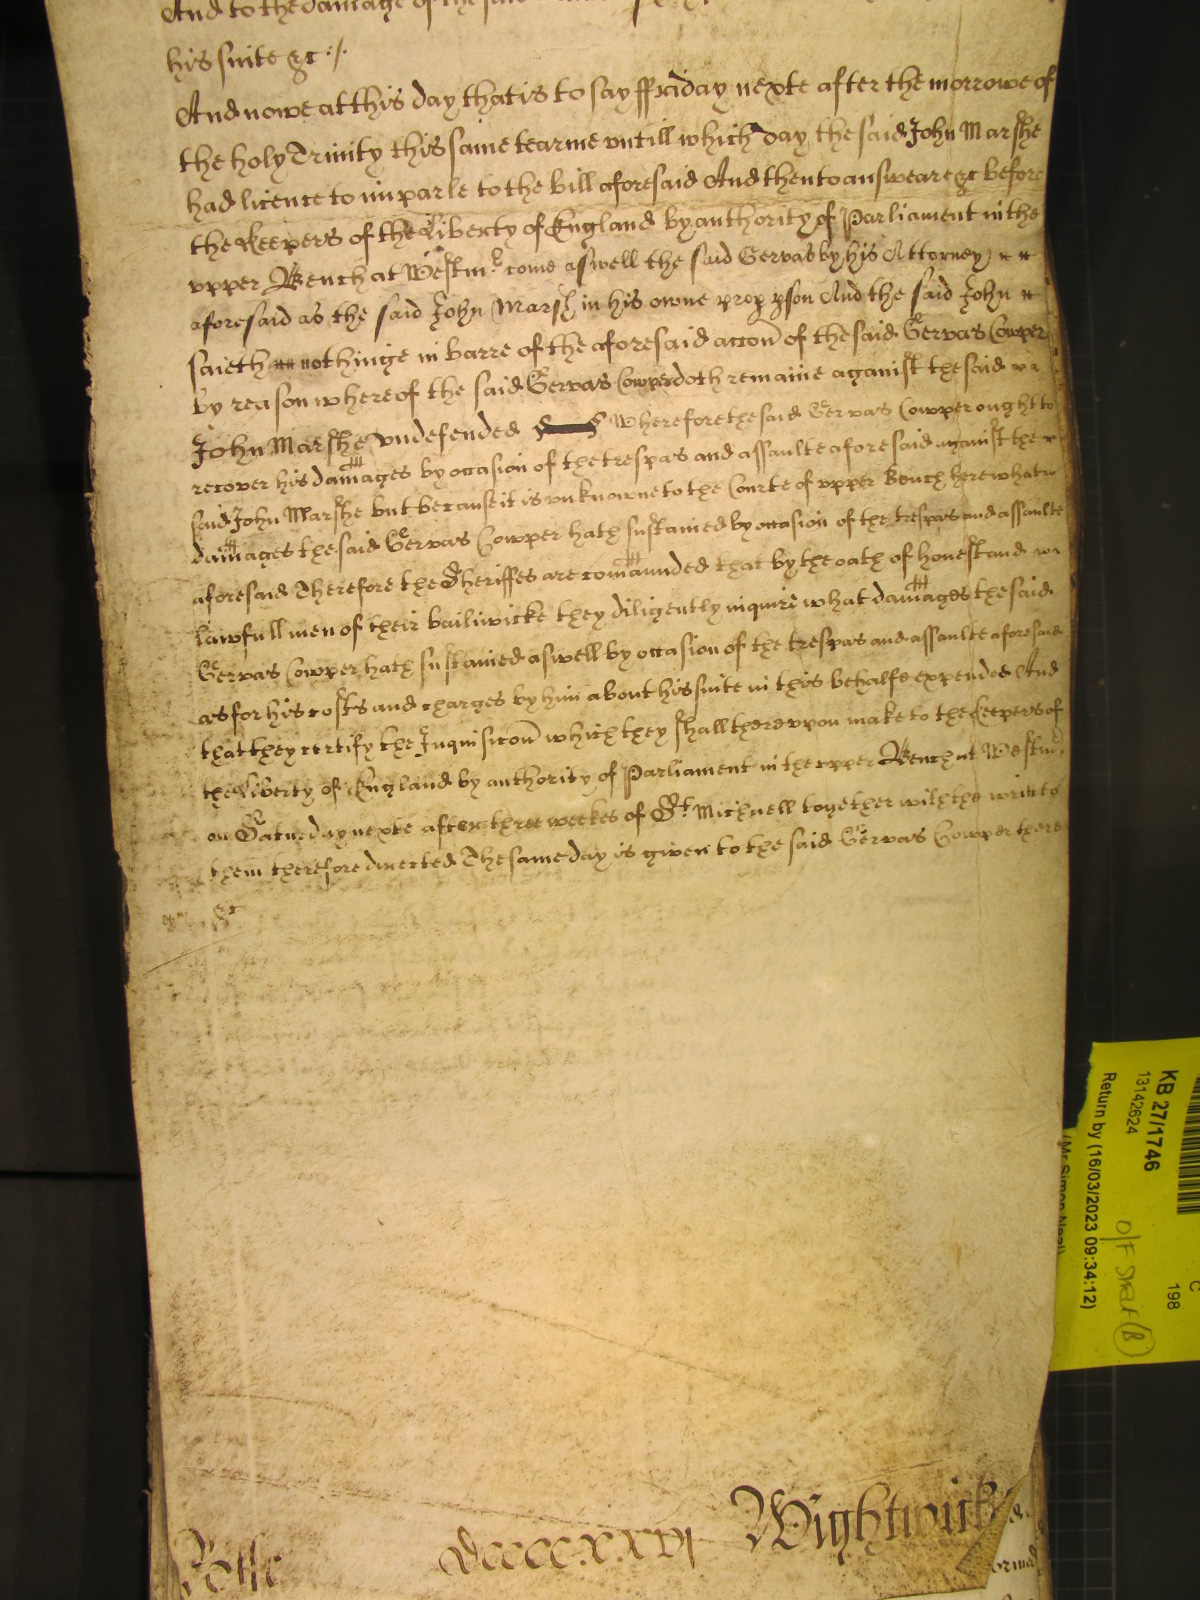 And to the damage of the said
his suite &c ./.
And nowe at this day that is to say ffriday nexte after the morrowe of
the holy Trinity this same tearme untill which day the said John Marshe
had licence to imparle to the bill aforesaid And then to answeare &c before
the Keepers of the Liberty of England by authority of Parliament in the
upper Bench at Westmr come aswell the said Gervas by his Attorney
aforesaid as the said John Marsh in his owne prop pson And the said John
saieth nothinge in barre of the aforesaid accon of the said Gervas Cowper
by reason whereof the said Gervas Cowper doth remaine against the said
John Marshe undefended Wherefore the said Gervas Cowper ought to
recover his damages by occasion of the trespas and assaulte aforesaid against the
said John Marshe but because it is unknowne to the Courte of upper Bench here what
damages the said Gervas Cowper hath sustained by occasion of the trespas and assaulte
aforesaid Therefore the Sheriffes are comaunded that by the oath of honest and
lawfull men of their bailiwicke they diligently inquire what damages the said
Gervas Cowper hath sustained aswell by occasion of the trespas and assaulte aforesaid
as for his costs and charges by him about his suite in this behalfe expended And
that they certify the Inquisicon which they shall thereuppon make to the Keepers of
the Liberty of England by authority of Parliament in the upper Bench at Westmr
on Saturday nexte after three weekes of St Michaell together with the writt to
them therefore directed The same day is given to the said Gervas Cowper there
&c
Rolle DCCCC.XXVI Wightwick
KB 27/1746
13142624
Return by (16/03/2023 09:34:12)
C
198